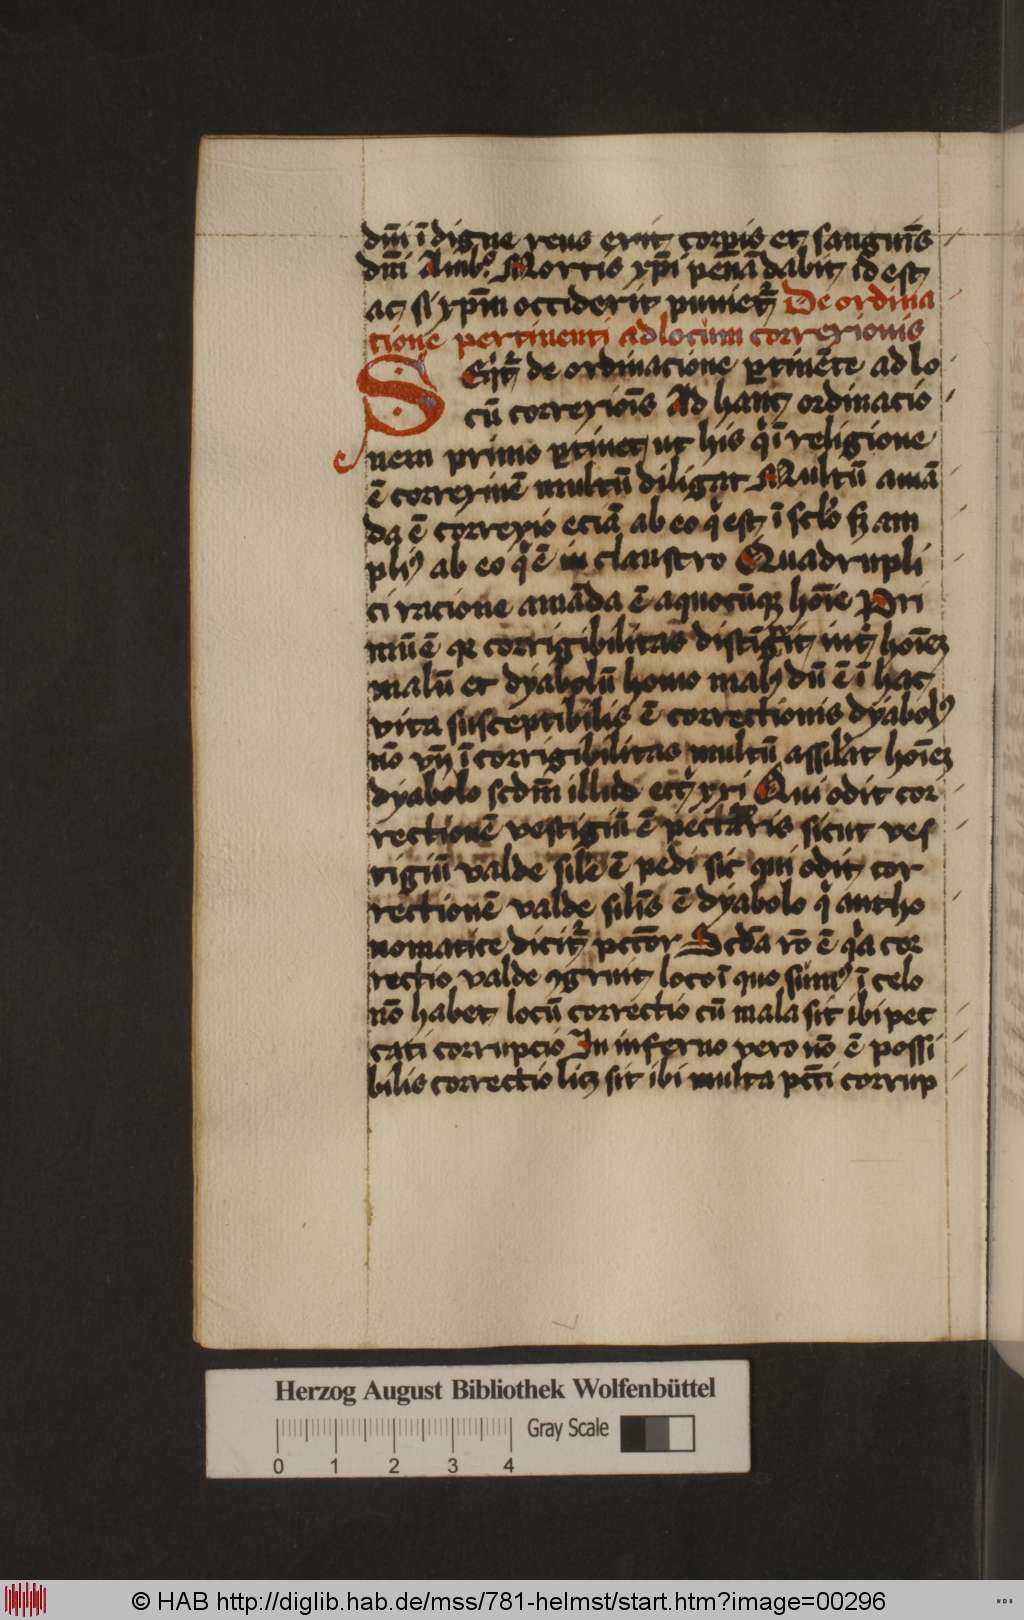 dn̄i īdigne reus erit corp̄is et sangūis
dn̄i Amb᷒ Mortis xp̄i penā dabit id est
ac si xp̄m occiderit puniet᷑ De ordina
tione pertinenti ad locum correxionis
Seqt᷑ de ordinacione ꝑtinēte ad lo
cū correxiōis Ad hanc ordinacio
nem primo ꝑtinet ut his q̄ ī religione
ē correxinē multū diligat Multū amā
da ē correxio eciā ab eo q̄ est ī sclo sꝫ am
pliꝰ ab eo q̄ ē in claustro Quadrupli
ci racione amāda ē a quocūqꝫ hoīe Pri
mū ē qꝛ corrigibilitas distīgit int᷑ hoīeꝫ
malū et dyabolū homo malꝰ dū ē ī hac
vita susceptibilis ē correctionis dyabolꝰ
nō vn̄ īcorrigibilitas multū assilat hoīeꝫ
dyabolo scdm̄ illud ecc᷑ xxi Qui odit cor
rectionē vestigiū ē peccatoris sicut ves
tigiū valde sile ē pedi sic qui odit cor
rectionē valde silis ē dyabolo q̄ antho
nomatice dicit᷑ pcc̄or Scd̄a rō ē q̄a cor
rectio valde ꝯgruit loco ī quo sumꝰ ī celo
nō habet locū correctio cū mala sit ibi pec
cati corrupcio In inferno vero nō ē possi
bilis correctio licꝫ sit ibi multa pcc̄i corrup
Herzog August Bibliothek Wolfenbüttel
Gray Scale
0 1 2 3 4
© HAB http://diglib.hab.de/mss/781-helmst/start.htm?image=00296